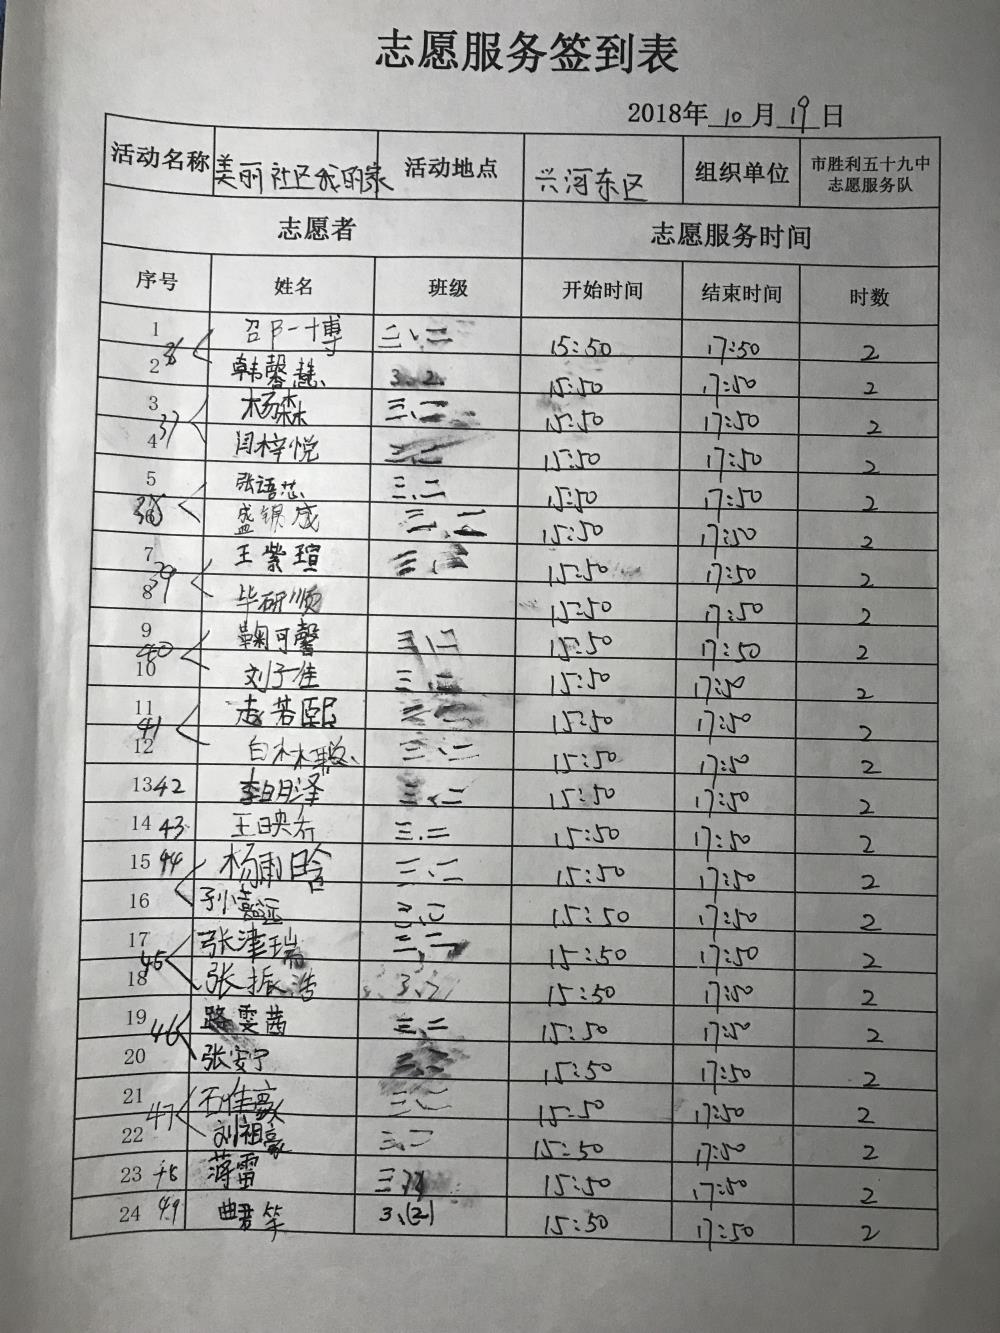 志愿服务签到表
2018年 10 月 19 日
活动名称 美丽社区我的家 活动地点 兴河东区 组织单位 市胜利五十九中志愿服务队
志愿者 志愿服务时间
序号 姓名 班级 开始时间 结束时间 时数
1 邵一博 三、二 15:50 17:50 2
36
2 韩馨慧 3、2 15:50 17:50 2
3 杨森 三、二 15:50 17:50 2
37
4 闫梓悦 三、二 15:50 17:50 2
5 张语芯 三、二 15:50 17:50 2
38
6 盛锦成 三、二 15:50 17:50 2
7 王紫瑄 三、二 15:50 17:50 2
39
8 毕研顺 15:50 17:50 2
9 鞠可馨 三、二 15:50 17:50 2
40
10 刘子佳 三、二 15:50 17:50 2
11 赵若熙 三、二 15:50 17:50 2
41
12 白 三、二 15:50 17:50 2
13 42 李明泽 三、二 15:50 17:50 2
14 43 王映 三、二 15:50 17:50 2
15 44 杨雨晗 三、二 15:50 17:50 2
16 孙嘉远 三、二 15:50 17:50 2
17 张津瑞 三、二 15:50 17:50 2
45
18 张振浩 3、2 15:50 17:50 2
19 路雯茜 三、二 15:50 17:50 2
46
20 张安宁 15:50 17:50 2
21 石佳豪 三、二 15:50 17:50 2
47
22 刘祖豪 三、二 15:50 17:50 2
23 48 蒋雷 三、 15:50 17:50 2
24 49 曲君笑 3、(2) 15:50 17:50 2